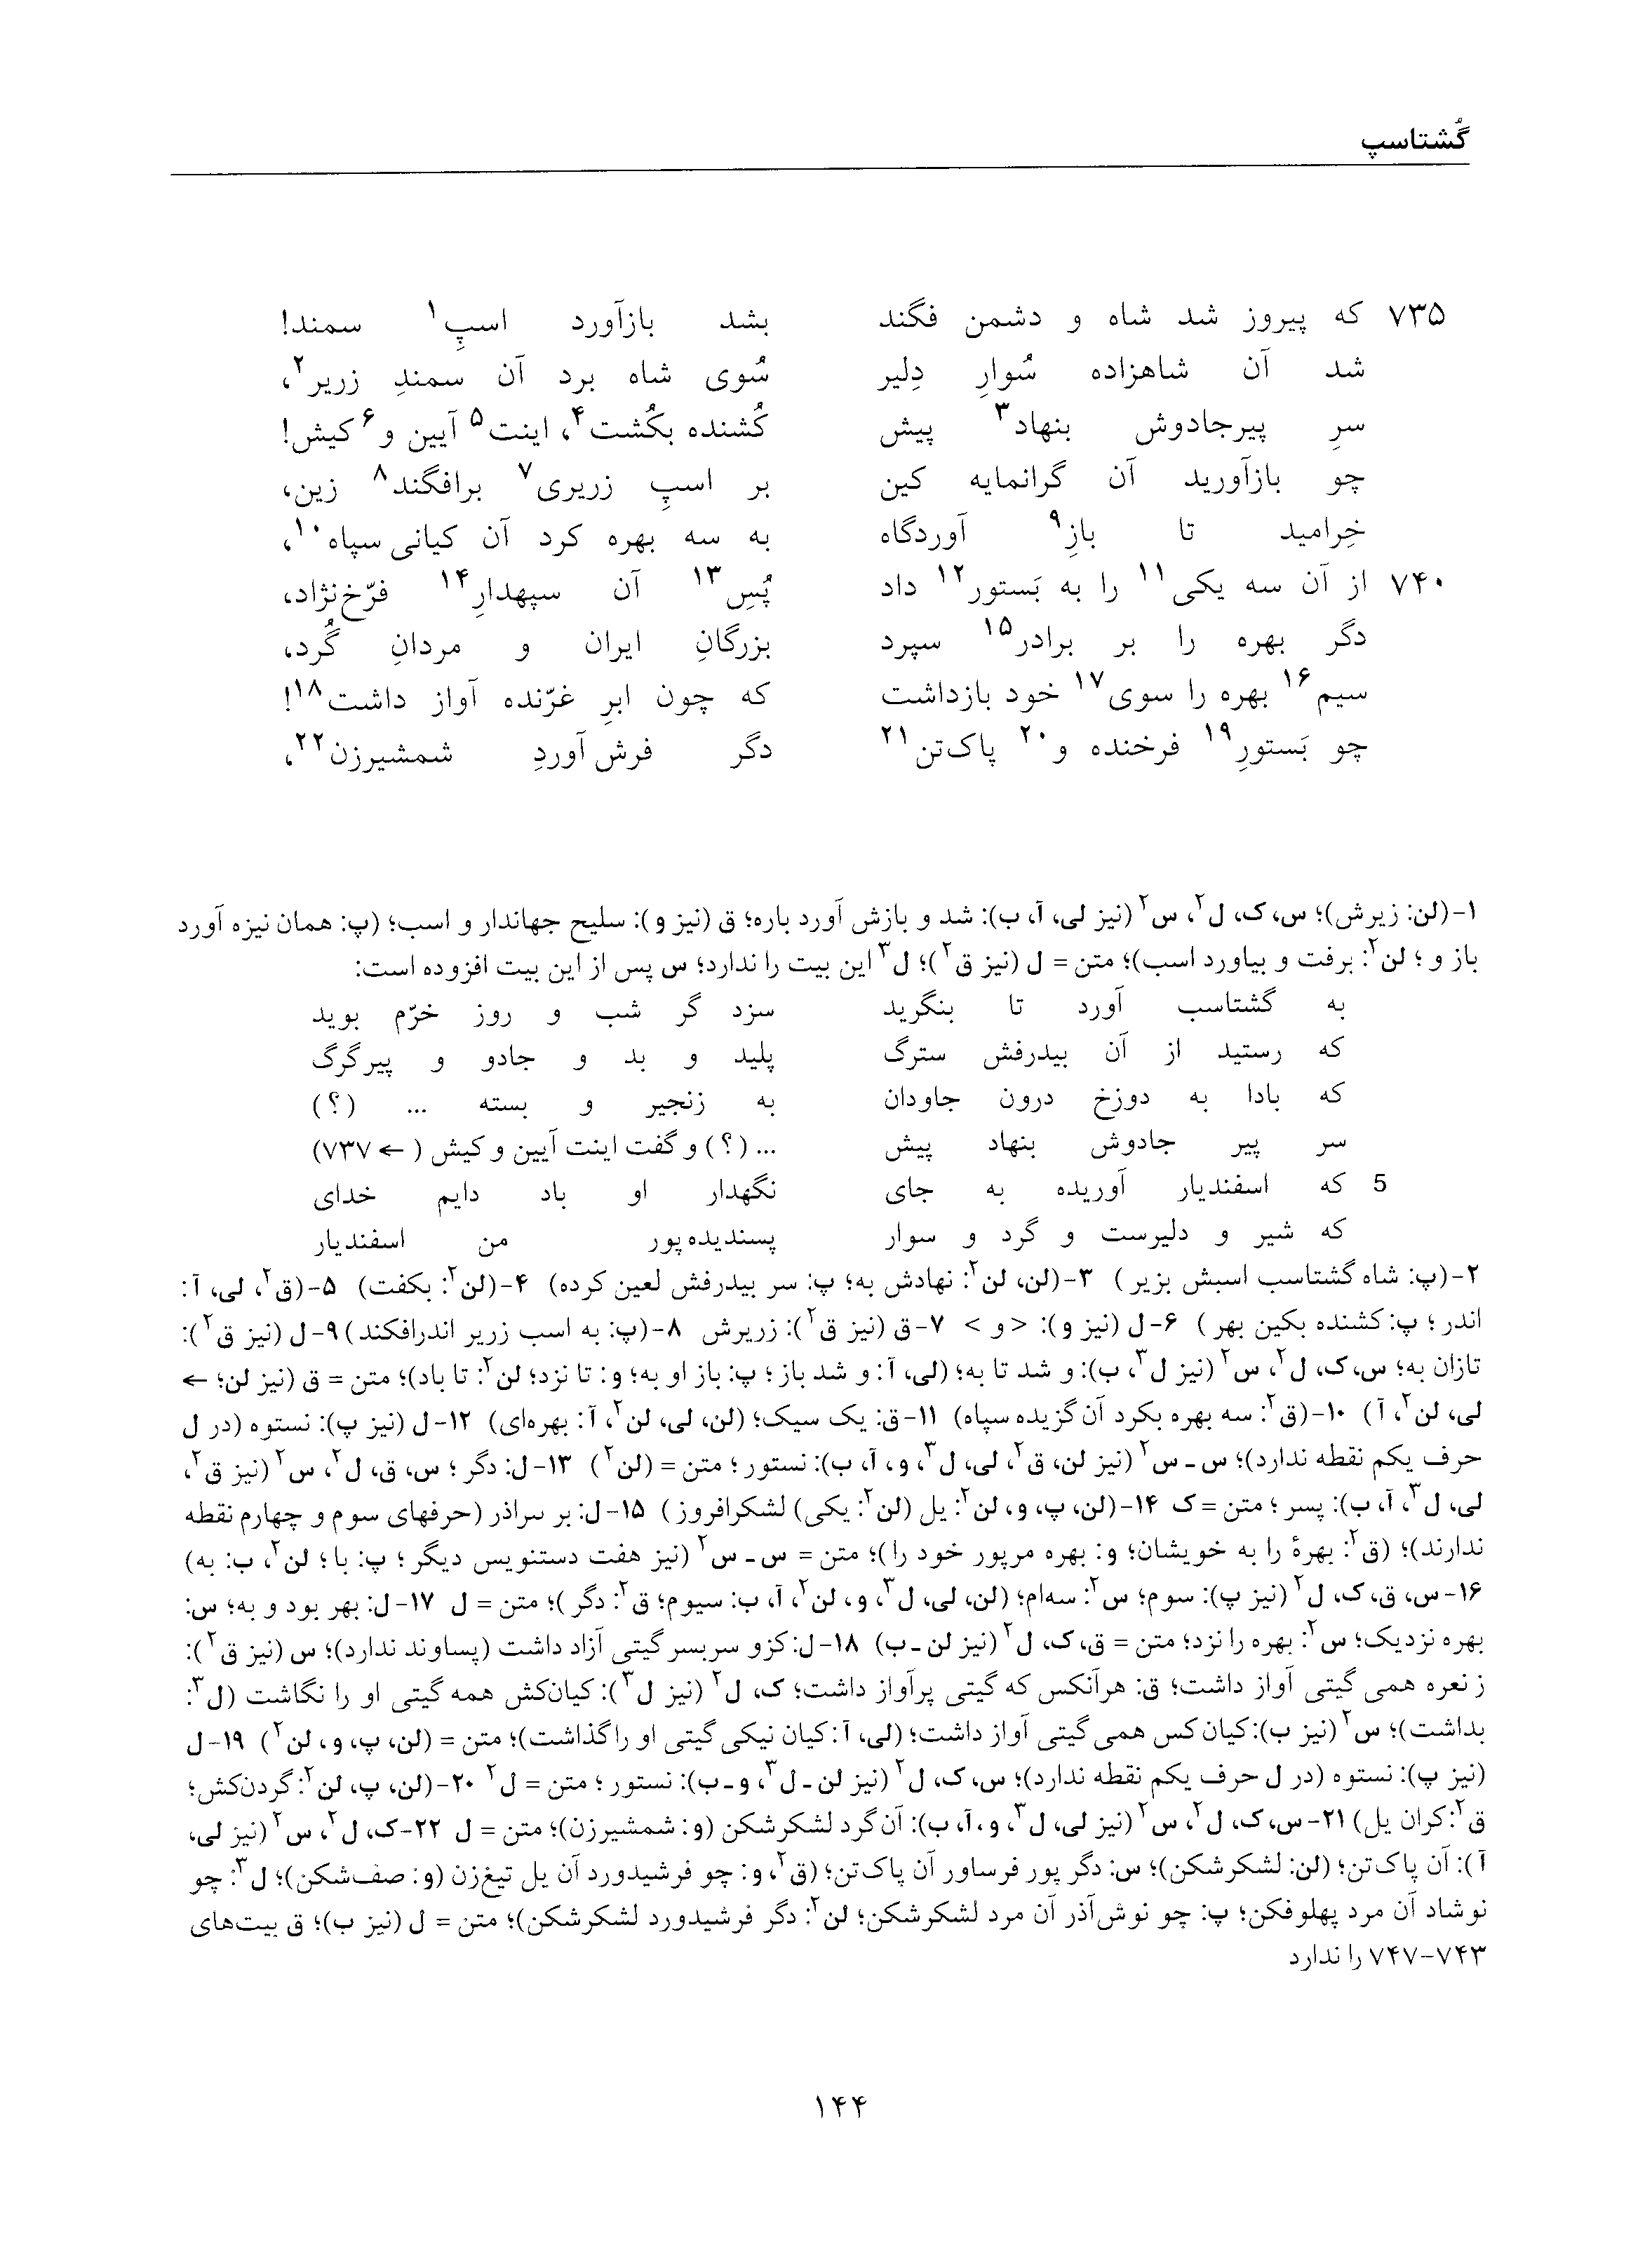 گُشتاسپ
۷۳۵ که پیروز شد شاه و دشمن فگند بشد بازآورد اسپِ۱ سمند!
شد آن شاهزاده سُوارِ دِلیر سُوی شاه برد آن سمندِ زریر۲،
سرِ پیرجادوش بنهاد۳ پیش کُشنده بکُشت۴، اینت۵ آیین و۶ کیش!
چو بازآورید آن گرانمایه کین بر اسپِ زریری۷ برافگند۸ زین،
خِرامید تا بازِ۹ آوردگاه به سه بهره کرد آن کیانی سپاه۱۰،
۷۴۰ از آن سه یکی۱۱ را به بَستور۱۲ داد پُسِ۱۳ آن سپهدارِ۱۴ فرّخ‌نژاد،
دگر بهره را بر برادر۱۵ سپرد بزرگانِ ایران و مردانِ گُرد،
سیم۱۶ بهره را سوی۱۷ خود بازداشت که چون ابرِ غرّنده آواز داشت۱۸!
چو بَستورِ۱۹ فرخنده و۲۰ پاک‌تن۲۱ دگر فرش‌آوردِ شمشیرزن۲۲،
۱-(لن: زیرش)؛ س، ک، ل۲، س۲ (نیز لی، آ، ب): شد و بازش آورد باره؛ ق (نیز و): سلیح جهاندار و اسب؛ (پ: همان نیزه آورد
باز و؛ لن۲: برفت و بیاورد اسب)؛ متن = ل (نیز ق۲)؛ ل۳ این بیت را ندارد؛ س پس از این بیت افزوده است:
به گشتاسب آورد تا بنگرید سزد گر شب و روز خرّم بوید
که رستید از آن بیدرفش سترگ پلید و بد و جادو و پیرگرگ
که بادا به دوزخ درون جاودان به زنجیر و بسته ... (؟)
سر پیر جادوش بنهاد پیش ... (؟) و گفت اینت آیین و کیش (← ۷۳۷)
5 که اسفندیار آوریده به جای نگهدار او باد دایم خدای
که شیر و دلیرست و گرد و سوار پسندیده‌پور من اسفندیار
۲-(پ: شاه گشتاسب اسبش بزیر) ۳-(لن، لن۲: نهادش به؛ پ: سر بیدرفش لعین کرده) ۴-(لن۲: بکفت) ۵-(ق۲، لی، آ:
اندر؛ پ: کشنده بکین بهر) ۶-ل (نیز و): <و> ۷-ق (نیز ق۲): زریرش ۸-(پ: به اسب زریر اندرافکند) ۹-ل (نیز ق۲):
تازان به؛ س، ک، ل۲، س۲ (نیز ل۳، ب): و شد تا به؛ (لی، آ: و شد باز؛ پ: باز او به؛ و: تا نزد؛ لن۲: تا باد)؛ متن = ق (نیز لن؛ ←
لی، لن۲، آ) ۱۰-(ق۲: سه بهره بکرد آن گزیده سپاه) ۱۱-ق: یک سیک؛ (لن، لی، لن۲، آ: بهره‌ای) ۱۲-ل (نیز پ): نستوه (در ل
حرف یکم نقطه ندارد)؛ س-س۲ (نیز لن، ق۲، لی، ل۳، و، آ، ب): نستور؛ متن = (لن۲) ۱۳-ل: دگر؛ س، ق، ل۲، س۲ (نیز ق۲،
لی، ل۳، آ، ب): پسر؛ متن = ک ۱۴-(لن، پ، و، لن۲: یل (لن۲: یکی) لشکرافروز) ۱۵-ل: بر ىىراذر (حرفهای سوم و چهارم نقطه
ندارند)؛ (ق۲: بهرهٔ را به خویشان؛ و: بهره مرپور خود را)؛ متن = س-س۲ (نیز هفت دستنویس دیگر؛ پ: با؛ لن۲، ب: به)
۱۶-س، ق، ک، ل۲ (نیز پ): سوم؛ س۲: سه‌ام؛ (لن، لی، ل۳، و، لن۲، آ، ب: سیوم؛ ق۲: دگر)؛ متن = ل ۱۷-ل: بهر بود و به؛ س:
بهره نزدیک؛ س۲: بهره را نزد؛ متن = ق، ک، ل۲ (نیز لن-ب) ۱۸-ل: کزو سربسر گیتی آزاد داشت (پساوند ندارد)؛ س (نیز ق۲):
ز نعره همی گیتی آواز داشت؛ ق: هرآنکس که گیتی پرآواز داشت؛ ک، ل۲ (نیز ل۳): کیان‌کش همه گیتی او را نگاشت (ل۳:
بداشت)؛ س۲ (نیز ب): کیان کس همی گیتی آواز داشت؛ (لی، آ: کیان نیکی گیتی او را گذاشت)؛ متن = (لن، پ، و، لن۲) ۱۹-ل
(نیز پ): نستوه (در ل حرف یکم نقطه ندارد)؛ س، ک، ل۲ (نیز لن-ل۳، و-ب): نستور؛ متن = ل۲ ۲۰-(لن، پ، لن۲: گردن‌کش؛
ق۲: کران یل) ۲۱-س، ک، ل۲، س۲ (نیز لی، ل۳، و، آ، ب): آن گرد لشکرشکن (و: شمشیرزن)؛ متن = ل ۲۲-ک، ل۲، س۲ (نیز لی،
آ): آن پاک‌تن؛ (لن: لشکرشکن)؛ س: دگر پور فرساور آن پاک‌تن؛ (ق۲، و: چو فرشیدورد آن یل تیغ‌زن (و: صف‌شکن)؛ ل۳: چو
نوشاد آن مرد پهلوفکن؛ پ: چو نوش‌آذر آن مرد لشکرشکن؛ لن۲: دگر فرشیدورد لشکرشکن)؛ متن = ل (نیز ب)؛ ق بیت‌های
۷۴۳-۷۴۷ را ندارد
۱۴۴